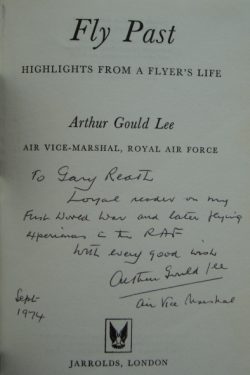 Fly Past
HIGHLIGHTS FROM A FLYER'S LIFE
Arthur Gould Lee
AIR VICE-MARSHAL, ROYAL AIR FORCE
To Gary
Loyal reader on my
First World War and later flying
experiences in the RAF
With every good wish
Arthur Gould Lee
Air Vice Marshal
Sept
1974
JARROLDS, LONDON